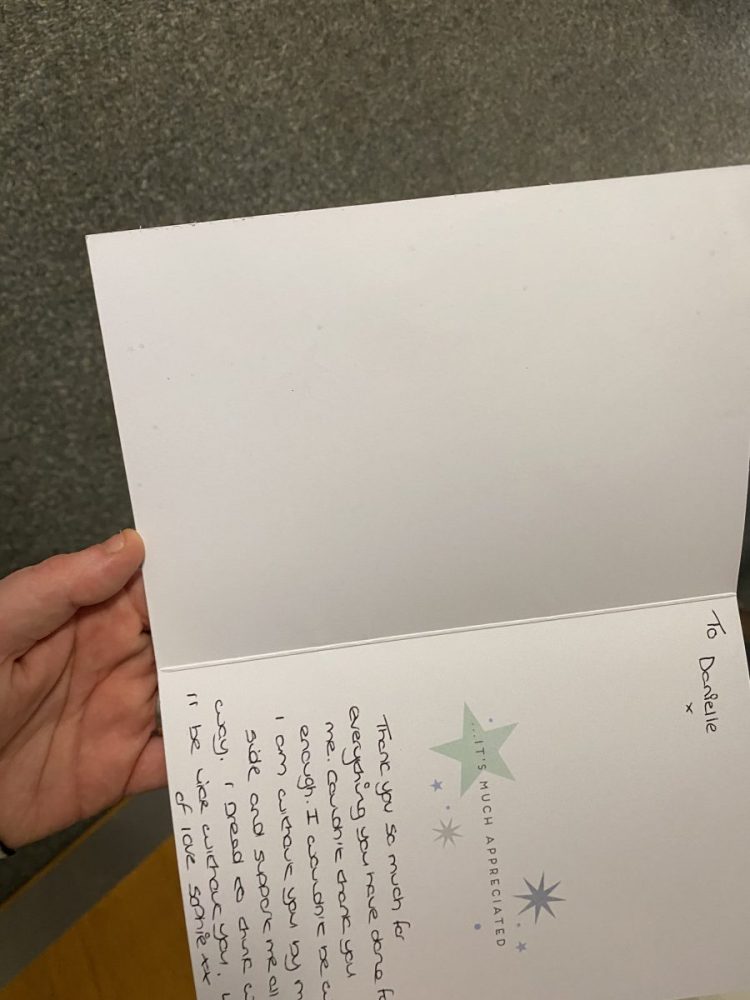 To Danielle
x
...IT'S MUCH APPRECIATED
Thank you so much for
everything you have done
me. Couldn't thank you
enough. I wouldn't be
I am without you by
side and support me all
way. I dread to think
be like without you.
of love Sophie xx